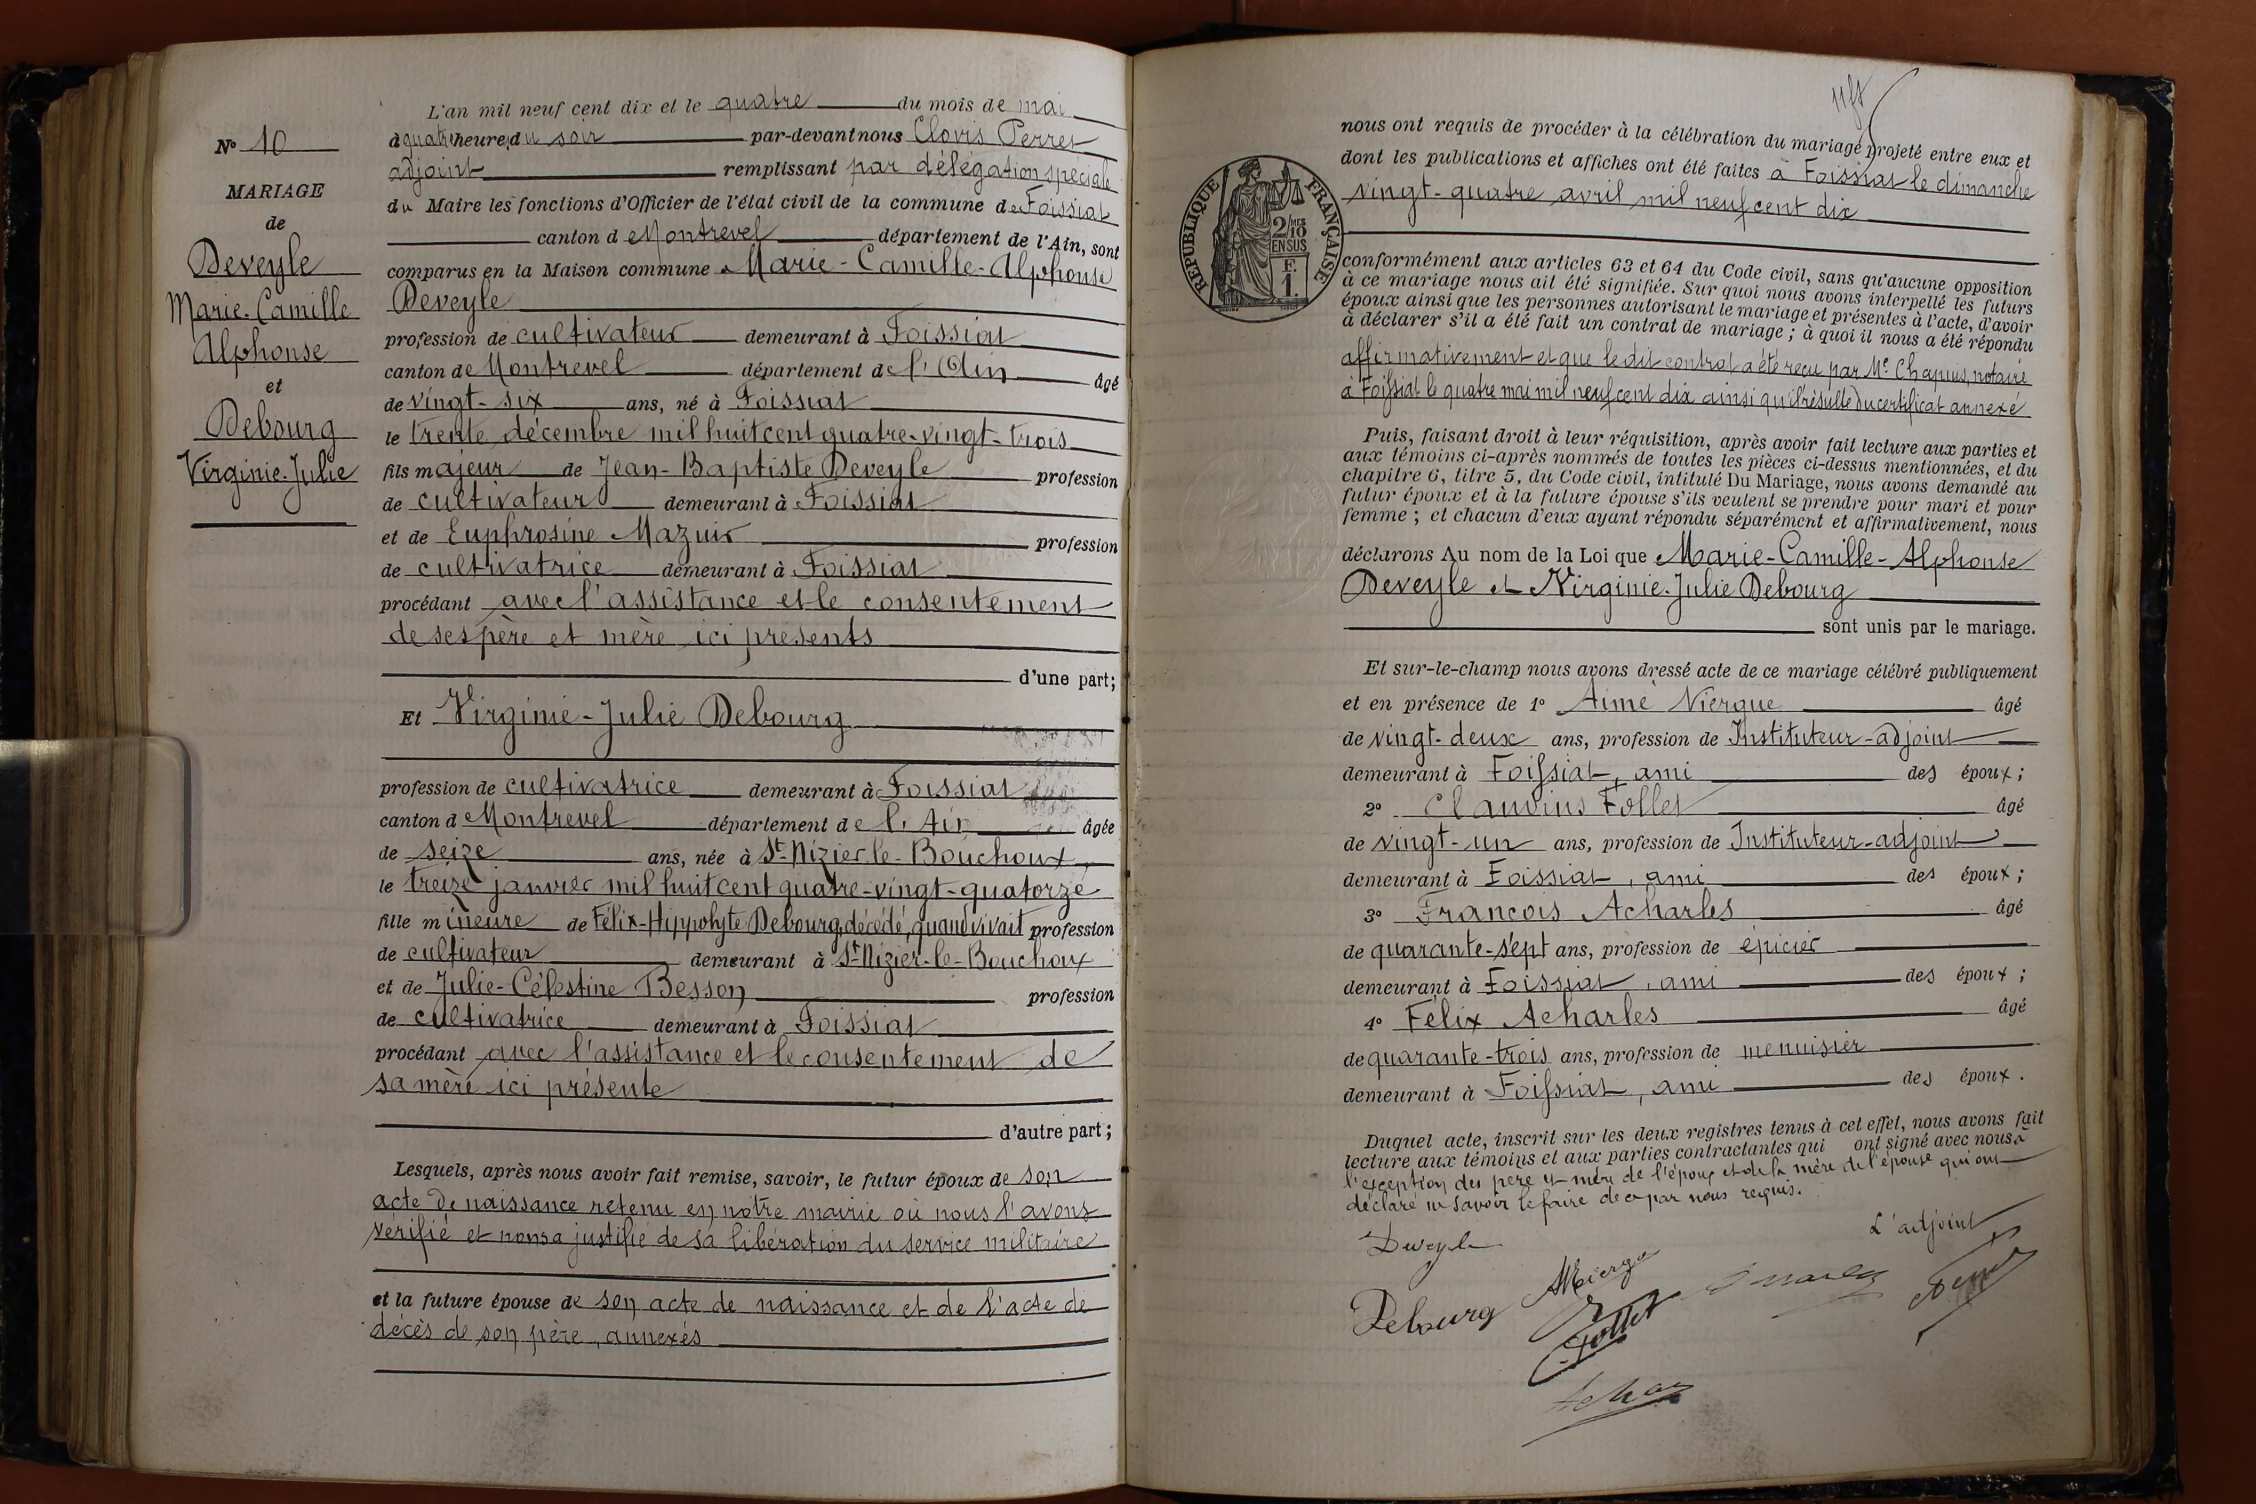 N° 10
MARIAGE
de
Deveyle
Marie-Camille
Alphonse
et
Debourg
Virginie-Julie
L'an mil neuf cent dix et le quatre du mois de mai
à quatre heures du soir par-devant nous Clovis Perret
adjoint remplissant par délégation spéciale
du Maire les fonctions d'Officier de l'état civil de la commune de Foissiat
canton d Montrevel département de l'Ain, sont
comparus en la Maison commune Marie-Camille-Alphonse
Deveyle
profession de cultivateur demeurant à Foissiat
canton de Montrevel département de l'Ain âgé
de vingt-six ans, né à Foissiat
le trente décembre mil huit cent quatre-vingt-trois
fils majeur de Jean-Baptiste Deveyle profession
de cultivateur demeurant à Foissiat
et de Euphrosine Mazuir profession
de cultivatrice demeurant à Foissiat
procédant avec l'assistance et le consentement
de ses père et mère ici présents
d'une part;
Et Virginie-Julie Debourg
profession de cultivatrice demeurant à Foissiat
canton d Montrevel département de l'Ain âgée
de seize ans, née à St-Nizier-le-Bouchoux,
le treize janvier mil huit cent quatre-vingt-quatorze
fille mineure de Félix-Hyppolyte Debourg, décédé, quand vivait profession
de cultivateur demeurant à St-Nizier-le-Bouchoux
et de Julie-Célestine Besson profession
de cultivatrice demeurant à Foissiat
procédant avec l'assistance et le consentement de
sa mère ici présente
d'autre part;
Lesquels, après nous avoir fait remise, savoir, le futur époux de son
acte de naissance retenu en notre mairie où nous l'avons
vérifié et nous a justifié de sa libération du service militaire
et la future épouse de son acte de naissance et de l'acte de
décès de son père, annexés
nous ont requis de procéder à la célébration du mariage projeté entre eux et
dont les publications et affiches ont été faites à Foissiat le dimanche
vingt-quatre avril mil neuf cent dix
RÉPUBLIQUE FRANÇAISE
2/10
EN SUS
F.
1.
conformément aux articles 63 et 64 du Code civil, sans qu'aucune opposition
à ce mariage nous ait été signifiée. Sur quoi nous avons interpellé les futurs
époux ainsi que les personnes autorisant le mariage et présentes à l'acte, d'avoir
à déclarer s'il a été fait un contrat de mariage; à quoi il nous a été répondu
affirmativement et que le dit contrat a été reçu par Me Chapuis, notaire
à Foissiat le quatre mai mil neuf cent dix ainsi qu'il résulte du certificat annexé
Puis, faisant droit à leur réquisition, après avoir fait lecture aux parties et
aux témoins ci-après nommés de toutes les pièces ci-dessus mentionnées, et du
chapitre 6, titre 5, du Code civil, intitulé Du Mariage, nous avons demandé au
futur époux et à la future épouse s'ils veulent se prendre pour mari et pour
femme; et chacun d'eux ayant répondu séparément et affirmativement, nous
déclarons Au nom de la Loi que Marie-Camille-Alphonse
Deveyle et Virginie-Julie Debourg
sont unis par le mariage.
Et sur-le-champ nous avons dressé acte de ce mariage célébré publiquement
et en présence de 1° Aimé Niergue âgé
de vingt-deux ans, profession de Instituteur-adjoint
demeurant à Foissiat, ami des époux;
2° Clauvius Follet âgé
de vingt-un ans, profession de Instituteur-adjoint
demeurant à Foissiat, ami des époux;
3° François Acharles âgé
de quarante-sept ans, profession de épicier
demeurant à Foissiat, ami des époux;
4° Félix Acharles âgé
de quarante-trois ans, profession de menuisier
demeurant à Foissiat, ami des époux.
Duquel acte, inscrit sur les deux registres tenus à cet effet, nous avons fait
lecture aux témoins et aux parties contractantes qui ont signé avec nous à
l'exception des père et mère de l'époux et de la mère de l'épouse qui ont
déclaré ne savoir le faire de ce par nous requis.
L'adjoint
Deveyle
Debourg
Follet
Perret